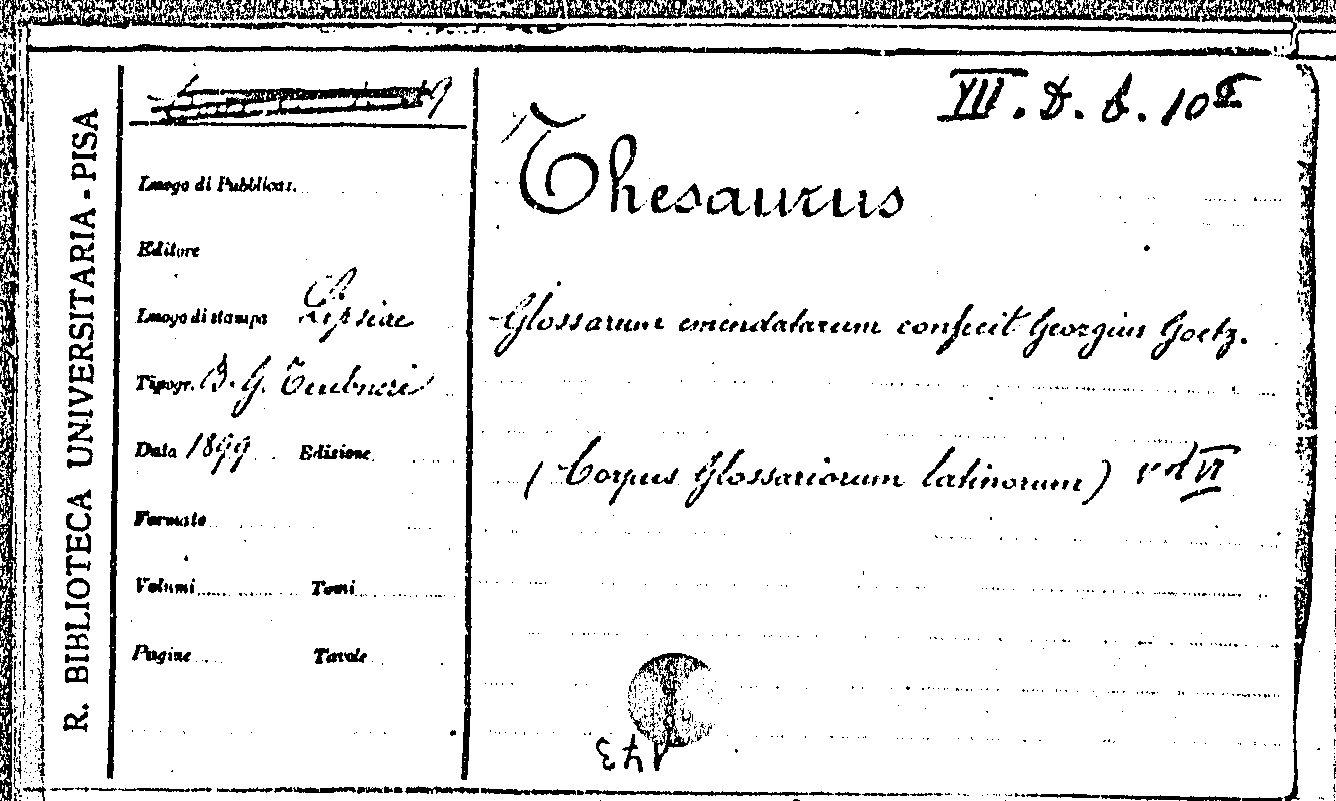 R. BIBLIOTECA UNIVERSITARIA - PISA
VII. D. 6. 10 I
Thesaurus
Glossarum emendatarum confecit Georgius Goetz.
(Corpus Glossariorum latinorum) vol VI
Luogo di Pubblicaz.
Editore
Luogo di stampa Lipsiae
Tipogr. B. G. Teubneri
Data 1899 Edizione
Formato
Volumi Tomi
Pagine Tavole
173